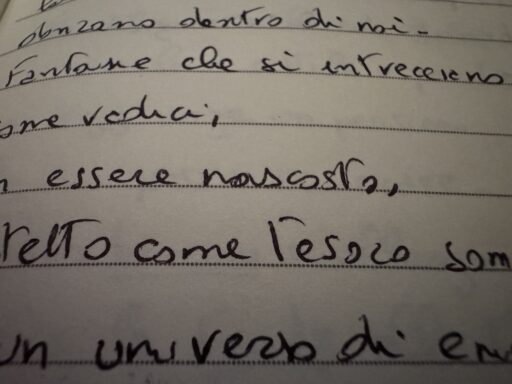 danzano dentro di noi-
Fantasie che si intrecciano
ome radici,
n essere nascosto,
retto come Tesoro som
un universo di em